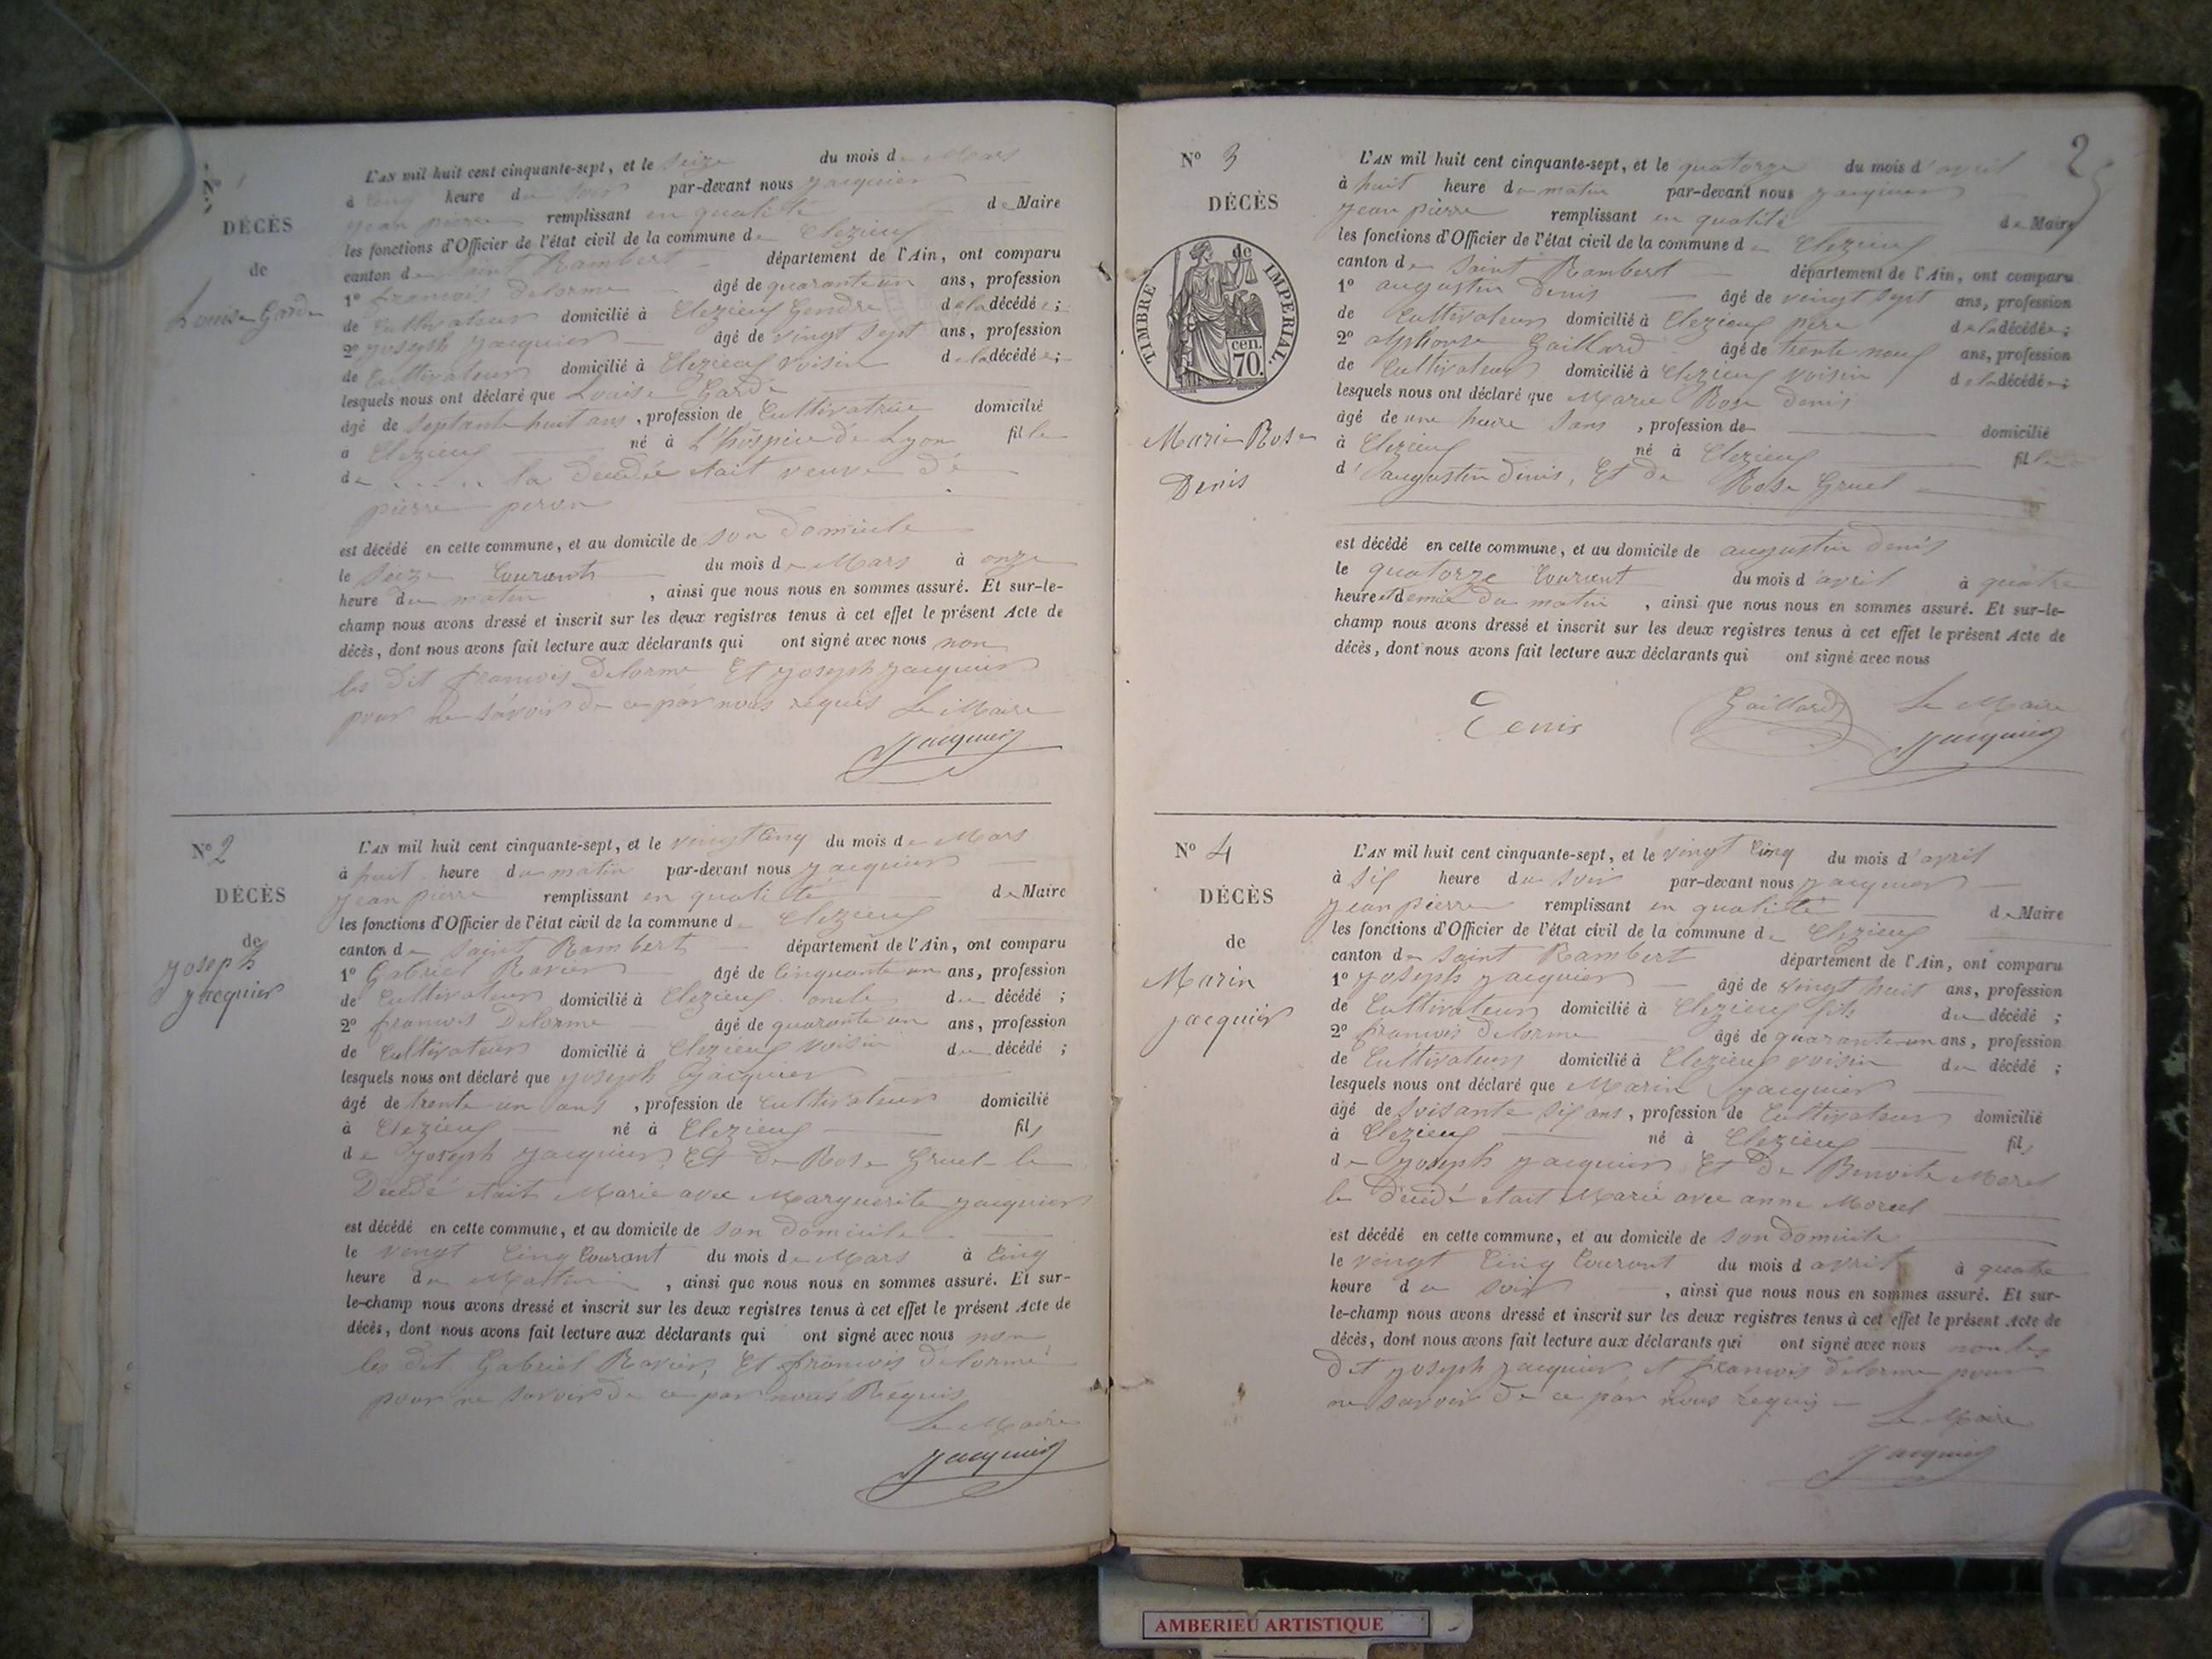 N° 1
DÉCÈS
de
Louise Garde
L'AN mil huit cent cinquante-sept, et le seize du mois de Mars
à cinq heure du soir par-devant nous jacquier
jean pierre remplissant en qualité de Maire
les fonctions d'Officier de l'état civil de la commune de Clezieux
canton de Saint Rambert département de l'Ain, ont comparu
1° francois Delorme âgé de quarante un ans, profession
de Cultivateur domicilié à Clezieux Gendre de la décédée;
2° joseph jacquier âgé de vingt sept ans, profession
de Cultivateur domicilié à Clezieux voisin de la décédée;
lesquels nous ont déclaré que Louise Garde
âgé de septante huit ans, profession de Cultivatrice domicilié
à Clezieux né à L'hospice de Lyon fille
de ..... la décédée était veuve de
pierre peron
est décédé en cette commune, et au domicile de son domicile
le seize Courant du mois de Mars à onze
heure du matin, ainsi que nous nous en sommes assuré. Et sur-le-
champ nous avons dressé et inscrit sur les deux registres tenus à cet effet le présent Acte de
décès, dont nous avons fait lecture aux déclarants qui ont signé avec nous non
les dit francois Delorme Et joseph jacquier
pour ne savoir de ce par nous requis Le Maire
Jacquier
N° 2
DÉCÈS
de
joseph
jacquier
L'AN mil huit cent cinquante-sept, et le vingt Cinq du mois de Mars
à huit heure du matin par-devant nous jacquier
jean pierre remplissant en qualité de Maire
les fonctions d'Officier de l'état civil de la commune de Clezieux
canton de Saint Rambert département de l'Ain, ont comparu
1° Gabriel Ravier âgé de Cinquante un ans, profession
de Cultivateur domicilié à Clezieux oncle du décédé;
2° francois Delorme âgé de quarante un ans, profession
de Cultivateur domicilié à Clezieux voisin du décédé;
lesquels nous ont déclaré que joseph jacquier
âgé de trente un ans, profession de Cultivateur domicilié
à Clezieux né à Clezieux fils
de joseph jacquier Et de Rose Gruel le
Décédé était Marié avec Marguerite jacquier
est décédé en cette commune, et au domicile de son domicile
le vingt Cinq Courant du mois de Mars à Cinq
heure du Mattin, ainsi que nous nous en sommes assuré. Et sur-
le-champ nous avons dressé et inscrit sur les deux registres tenus à cet effet le présent Acte de
décès, dont nous avons fait lecture aux déclarants qui ont signé avec nous non
les dit Gabriel Ravier, Et francois Delorme
pour ne savoir de ce par nous Requis
Le Maire
Jacquier
2
N° 3
DÉCÈS
de
TIMBRE IMPERIAL.
70 cen.
Marie Rose
Denis
L'AN mil huit cent cinquante-sept, et le quatorze du mois d'avril
à huit heure du matin par-devant nous jacquier
jean pierre remplissant en qualité de Maire
les fonctions d'Officier de l'état civil de la commune de Clezieux
canton de Saint Rambert département de l'Ain, ont comparu
1° augustin Denis âgé de vingt sept ans, profession
de Cultivateur domicilié à Clezieux père de la décédée;
2° alphonse Gaillard âgé de trente neuf ans, profession
de Cultivateur domicilié à Clezieux voisin de la décédée;
lesquels nous ont déclaré que Marie Rose Denis
âgé de une heure, profession de domicilié
à Clezieux né à Clezieux fille
d'augustin Denis, Et de Rose Gruel
est décédé en cette commune, et au domicile de augustin Denis
le quatorze Courant du mois d'avril à quatre
heure et demie du matin, ainsi que nous nous en sommes assuré. Et sur-le-
champ nous avons dressé et inscrit sur les deux registres tenus à cet effet le présent Acte de
décès, dont nous avons fait lecture aux déclarants qui ont signé avec nous
Denis Gaillard Le Maire
Jacquier
N° 4
DÉCÈS
de
Marin
jacquier
L'AN mil huit cent cinquante-sept, et le vingt Cinq du mois d'avril
à six heure du soir par-devant nous jacquier
jean pierre remplissant en qualité de Maire
les fonctions d'Officier de l'état civil de la commune de Clezieux
canton de Saint Rambert département de l'Ain, ont comparu
1° joseph jacquier âgé de vingt huit ans, profession
de Cultivateur domicilié à Clezieux fils du décédé;
2° francois Delorme âgé de quarante un ans, profession
de Cultivateur domicilié à Clezieux voisin du décédé;
lesquels nous ont déclaré que Marin jacquier
âgé de soisante six ans, profession de Cultivateur domicilié
à Clezieux né à Clezieux fils
de joseph jacquier Et de Benoite Morel
le Décédé était Marié avec anne Morel
est décédé en cette commune, et au domicile de son domicile
le vingt Cinq Courant du mois d'avril à quatre
heure du soir, ainsi que nous nous en sommes assuré. Et sur-
le-champ nous avons dressé et inscrit sur les deux registres tenus à cet effet le présent Acte de
décès, dont nous avons fait lecture aux déclarants qui ont signé avec nous non les
Dit joseph jacquier et francois Delorme pour
ne savoir de ce par nous requis
Le Maire
Jacquier
AMBERIEU ARTISTIQUE